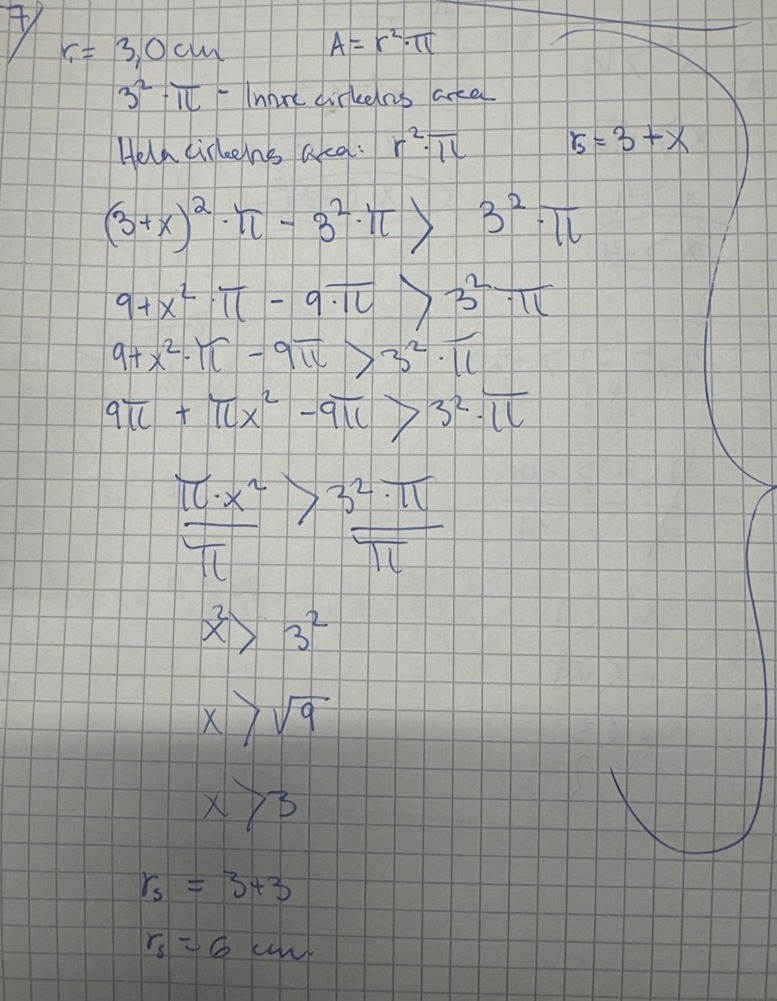 7)
r = 3,0 cm A = r² · π
3² · π - Inre cirkelns area
Hela cirkelns area: r² · π rs = 3 + x
(3+x)² · π - 3² · π > 3² · π
9+x² · π - 9 · π > 3² · π
9+x² · π - 9π > 3² · π
9π + πx² - 9π > 3² · π
π · x² / π > 3² · π / π
x² > 3²
x > √9
x > 3
rs = 3+3
rs = 6 cm.